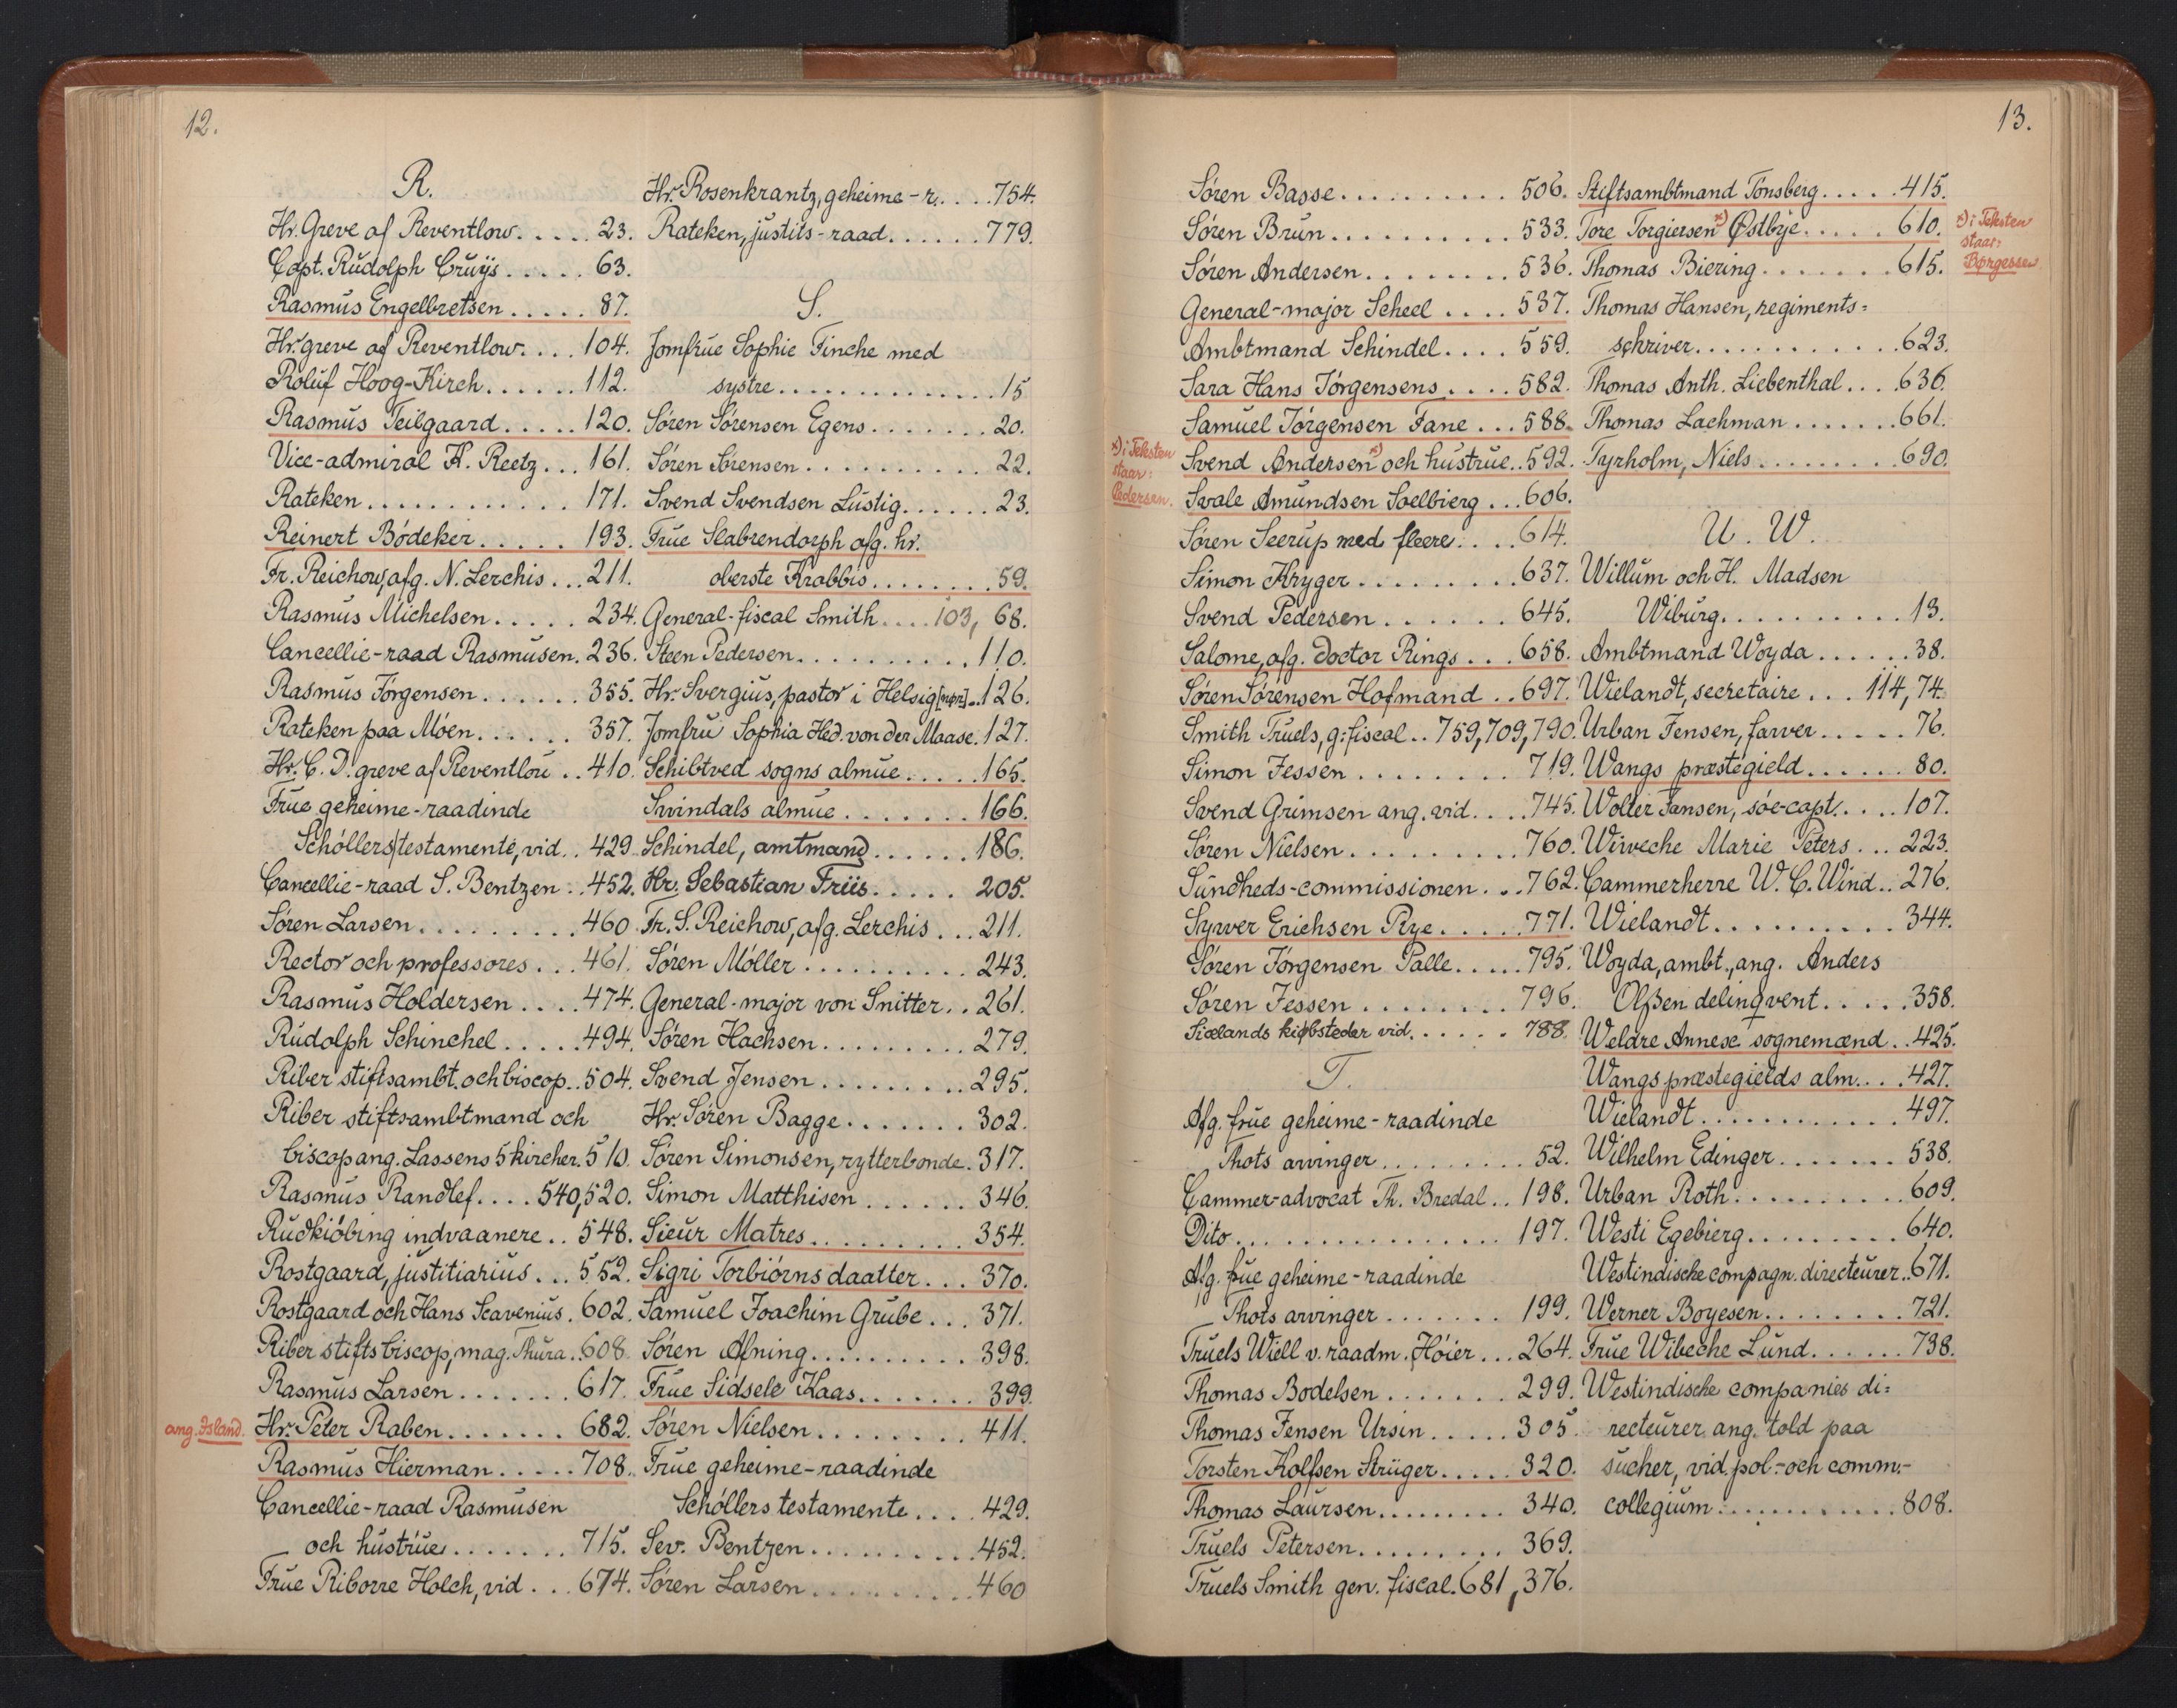 12.
R.
Hr. Greve af Reventlow..... 23.
Capt. Rudolph Cruÿs..... 63.
Rasmus Engelbretsen..... 87.
Hr. greve af Reventlow.... 104.
Roluf Hoog-Kirch...... 112.
Rasmus Teilgaard..... 120.
Vice-admiral K. Reetz... 161.
Rateken............ 171.
Reinert Bödeker..... 193.
Fr. Reichow, afg. N. Lerchis... 211.
Rasmus Michelsen..... 234.
Cancellie-raad Rasmusen. 236.
Rasmus Jörgensen...... 355.
Rateken paa Möen...... 357.
Hr. C. D. greve af Reventlou.. 410.
Frue geheime-raadinde
Schöllers testamente, vid.. 429.
Cancellie-raad S. Bentzen.. 452.
Sören Larsen......... 460.
Rector och professores... 461.
Rasmus Holdersen.... 474.
Rudolph Schinchel..... 494.
Riber stiftsambt. och biscop.. 504.
Riber stiftsambtmand och
biscop ang. Lassens 5 kircher. 510.
Rasmus Randlef.... 540, 520.
Rudkiöbing indvaanere.. 548.
Rostgaard, justitiarius... 552.
Rostgaard och Hans Scavenius. 602.
Riber stifts biscop, mag. Thura.. 608.
Rasmus Larsen....... 617.
ang. Island.
Hr. Peter Raben....... 682.
Rasmus Hierman..... 708.
Cancellie-raad Rasmusen
och hustrue....... 715.
Frue Riborre Holch, vid... 674.
Hr. Rosenkrantz, geheime-r.... 754.
Rateken, justits-raad...... 779.
S.
Jomfrue Sophie Finche med
systre.............. 15
Sören Sörensen Egens....... 20.
Sören Sörensen.......... 22.
Svend Svendsen Lustig...... 23.
Frue Slabrendorph afg. hr.
oberste Krabbis........ 59.
General-fiscal Smith.... 103, 68.
Steen Pedersen.......... 110.
Hr. Svergius, pastor i Helsig[nør].. 126.
Jomfru Sophia Hed. von der Maase. 127.
Schibtved sogns almue..... 165.
Svindals almue....... 166.
Schindel, amtmand...... 186.
Hr. Sebastian Friis..... 205.
Fr. S. Reichow, afg. Lerchis... 211.
Sören Möller.......... 243.
General-major von Snitter.. 261.
Sören Hachsen......... 279.
Svend Jensen......... 295.
Hr. Sören Bagge....... 302.
Sören Simonsen, rytterbonde. 317.
Simon Matthisen...... 346.
Sieur Matres......... 354.
Sigri Torbiörns daatter... 370.
Samuel Joachim Grube... 371.
Sören Afning.......... 398.
Frue Sidsele Kaas....... 399.
Sören Nielsen......... 411.
Frue geheime-raadinde
Schöllers testamente.... 429.
Sev. Bentzen.......... 452.
Sören Larsen.......... 460
13.
Sören Basse.......... 506.
Sören Brun.......... 533.
Sören Andersen........ 536.
General-major Scheel.... 537.
Ambtmand Schindel.... 559.
Sara Hans Jörgensens.... 582.
Samuel Jörgensen Fane... 588.
x) i Teksten
staar:
Pedersen.
Svend Andersen x) och hustrue.. 592.
Svale Amundsen Soelbierg... 606.
Sören Seerup med fleere.... 614.
Simon Kryger......... 637.
Svend Pedersen...... 645.
Salome, afg. doctor Rings... 658.
Sören Sörensen Hofmand.. 697.
Smith Truels, g: fiscal.. 759, 709, 790.
Simon Jessen........ 719.
Svend Grimsen ang. vid.... 745.
Sören Nielsen......... 760.
Sundheds-commissionen... 762.
Syver Erichsen Rye..... 771.
Sören Jörgensen Palle..... 795.
Sören Jessen........ 796.
Siælands kiøbsteder vid...... 788.
T.
Afg. frue geheime-raadinde
Thots arvinger......... 52.
Cammer-advocat Th. Bredal.. 198.
Dito................ 197.
Afg. frue geheime-raadinde
Thots arvinger....... 199.
Truels Wiell v. raadm. Höier... 264.
Thomas Bodelsen....... 299.
Thomas Jensen Ursin..... 305.
Torsten Kolfsen Strüger..... 320.
Thomas Laursen......... 340.
Truels Petersen......... 369.
Truels Smith gen. fiscal. 681, 376.
Stiftsambtmand Tönsberg..... 415.
Tore Torgiersen x) Østbye..... 610.
x) i Teksten
staar:
Børgessen
Thomas Biering....... 615.
Thomas Hansen, regiments=
schriver............ 623.
Thomas Anth. Liebenthal.... 636.
Thomas Lachman....... 661.
Tyrholm, Niels........ 690.
U. W.
Willum och H. Madsen
Wiburg.......... 13.
Ambtmand Woyda...... 38.
Wielandt, secretaire... 114, 74.
Urban Jensen, farver..... 76.
Wangs præstegield...... 80.
Wolter Jansen, söe-capt..... 107.
Wiveche Marie Peters... 223.
Cammerherre W. C. Wind.. 276.
Wielandt.......... 344.
Woyda, ambt., ang. Anders
Olßen delinqvent..... 358.
Weldre Annexe sognemænd.. 425.
Wangs præstegields alm.... 427.
Wielandt............ 497.
Wilhelm Edinger....... 538.
Urban Roth.......... 609.
Westi Egebierg......... 640.
Westindische compagn. directeurer.. 671.
Werner Boyesen........ 721.
Frue Wibeche Lund...... 738.
Westindische companies di=
recteurer ang. told paa
sucher, vid. pol.- och comm.-
collegium............ 808.